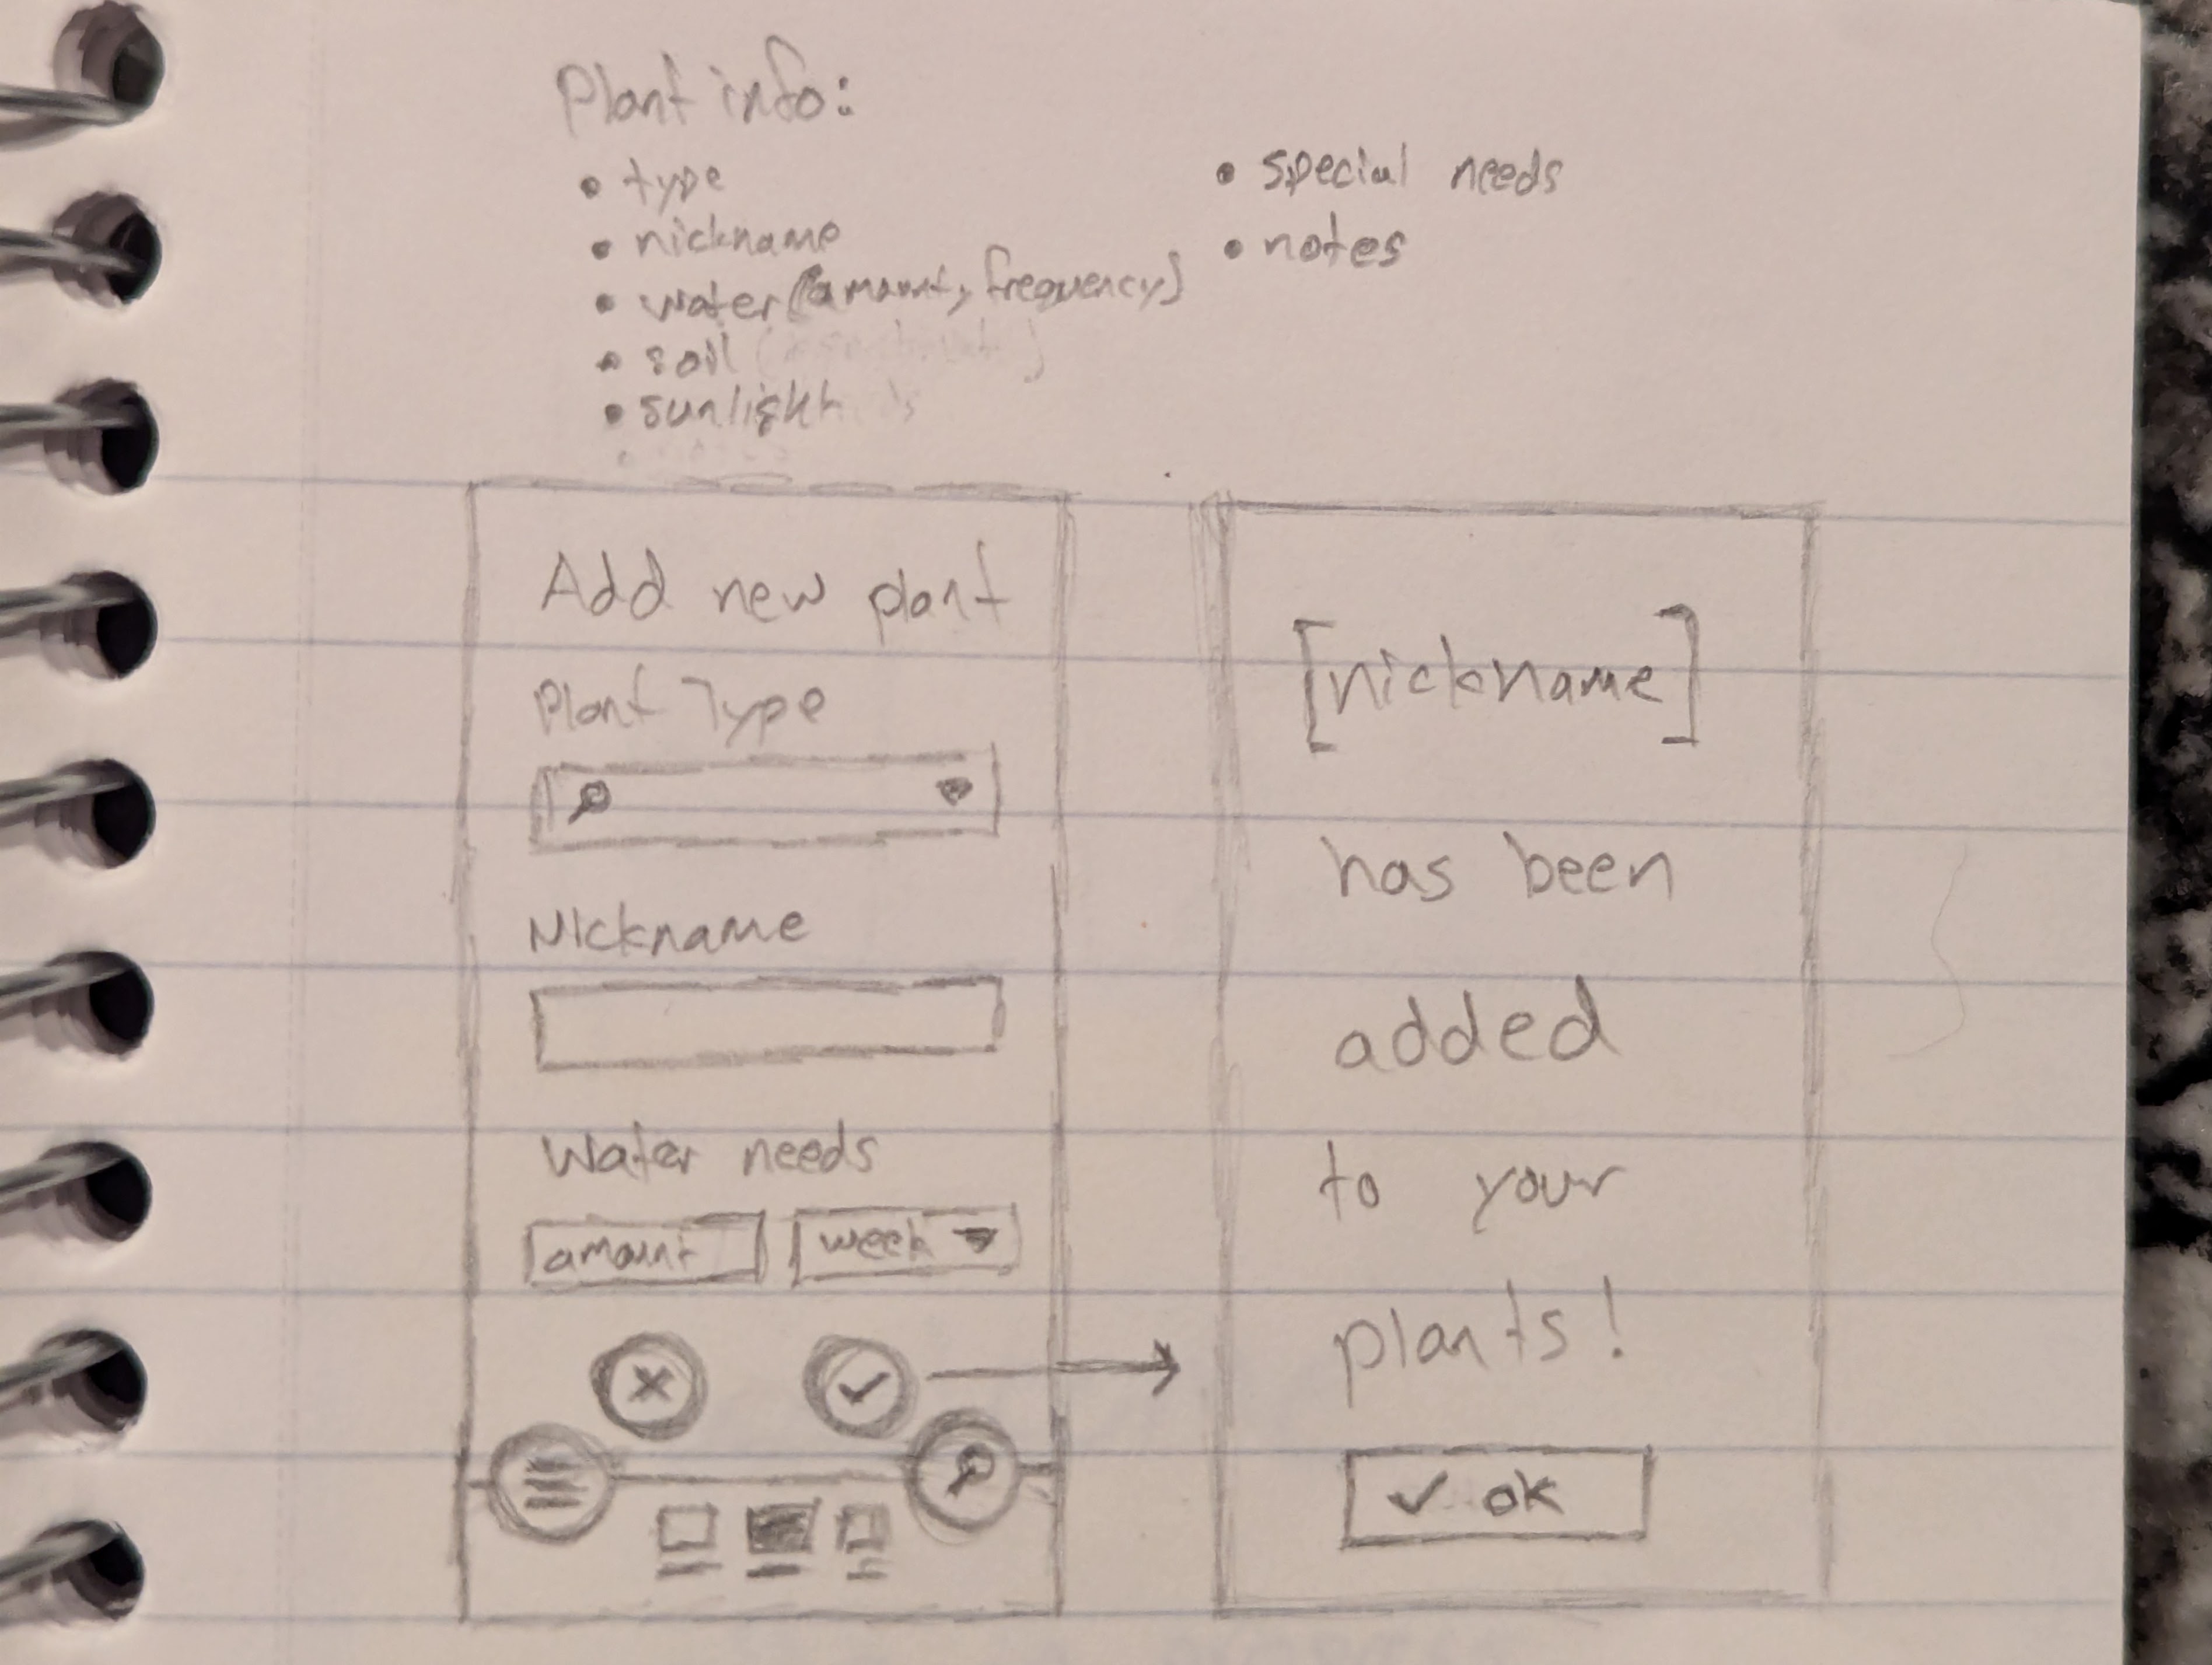 Plant info:
• type
• nickname
• water (amount, frequency)
• soil
• sunlight
• special needs
• notes
Add new plant
Plant Type
Nickname
Water needs
amount
week
[nickname]
has been
added
to your
plants!
✓ ok